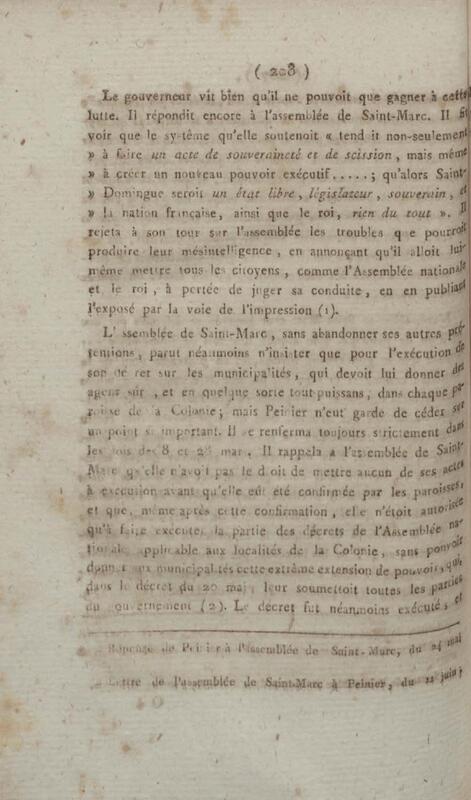 ( 208 )
Le gouverneur vit bien qu'il ne pouvoit que gagner à cette
lutte. Il répondit encore à l'assemblée de Saint-Marc. Il fit
voir que le système qu'elle soutenoit « tendoit non-seulement
» à faire un acte de souveraineté et de scission, mais même
» à créer un nouveau pouvoir exécutif.....; qu'alors Saint-
» Domingue seroit un état libre, législateur, souverain, et
» la nation française, ainsi que le roi, rien du tout ». Il
rejeta à son tour sur l'assemblée les troubles que pourroit
produire leur mésintelligence, en annonçant qu'il alloit lui-
même mettre tous les citoyens, comme l'Assemblée nationale
et le roi, à portée de juger sa conduite, en en publiant
l'exposé par la voie de l'impression (1).
L'ssemblée de Saint-Marc, sans abandonner ses autres pré-
tentions, parut néanmoins n'insister que pour l'exécution de
son décret sur les municipalités, qui devoit lui donner des
agens sûr, et en quelque sorte tout-puissans, dans chaque pa-
roisse de la Colonie; mais Peinier n'eut garde de céder sur
un point si important. Il se renferma toujours strictement dans
les lois des 8 et 28 mars. Il rappela à l'assemblée de Saint-
Marc qu'elle n'avoit pas le droit de mettre aucun de ses actes
à exécution avant qu'elle eût été confirmée par les paroisses,
et que, même après cette confirmation, elle n'étoit autorisée
qu'à faire exécuter la partie des décrets de l'Assemblée na-
tionale applicable aux localités de la Colonie, sans pouvoir
donner aux municipalités cette extrême extension de pouvoir, qui,
dans le décret du 20 mai, leur soumettoit toutes les parties
du gouvernement (2). Le décret fut néanmoins exécuté, et
Réponse de Peinier à l'assemblée de Saint-Marc, du 24 mai
Lettre de l'assemblée de Saint-Marc à Peinier, du juin;